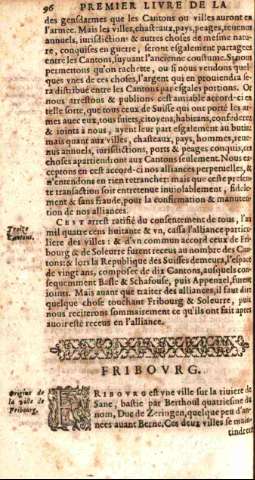 96 PREMIER LIVRE DE LA
des gensdarmes que les Cantons ou villes auront en
l'armee. Mais les villes, chasteaux, pays, peages, revenus
annuels, iurisdictions & autres choses de mesme natu-
re, conquises en guerre, seront esgalement partagees
entre les Cantons, suyuant l'ancienne coustume. Si nous
permettons qu'on rachette, ou si nous vendons quelqu'
vnes de ces choses, l'argent qui en prouiendra se-
ra distribué entre les Cantons par esgales portions. Or
nous arrestons & publions cest amiable accord-ci en
telle sorte, que tous ceux de Suisse qui ont porté les ar-
mes auec eux, tous suiets, citoyens, habitans, confederez
& ioints à nous, ayent leur part esgalement au butin:
mais quant aux villes, chasteaux, pays, hommes, reue-
nus annuels, iurisdictions, ponts & peages conquis, ces
choses apartiendront aux Cantons seulement. Nous ex-
ceptons en cest accord-ci nos alliances perpetuelles, &
n'entendons en rien retrancher: mais que ceste presen-
te transaction soit entretenue inuiolablement, fidele-
ment & sans fraude, pour la confirmation & manuten-
tion de nos alliances.
Traité
Cantons.
CEST arrest ratifié du consentement de tous, l'an
mil quatre cens huitante & vn, cassa l'alliance particu-
liere des villes: & d'vn commun accord ceux de Fri-
bourg & de Soleurre furent receus au nombre des Can-
tons: & lors la Republique des Suisses demeura, l'espace
de vingt ans, composee de dix Cantons, ausquels con-
sequemment Basle & Schafouse, puis Apenzel, furent
ioints. Mais auant que traiter des alliances, il faut dire
quelque chose touchant Fribourg & Soleurre, puis
nous reciterons sommairement ce qu'ils ont fait apres
auoir esté receus en l'alliance.
FRIBOVRG.
Origine de
la ville de
Fribourg.
FRIBOVRG est vne ville sur la riuiere de
Sane, bastie par Berthoul quatriesme du
nom, Duc de Zeringen, quelque peu d'an-
nees auant Berne. Ces deux villes se main-
tindrent